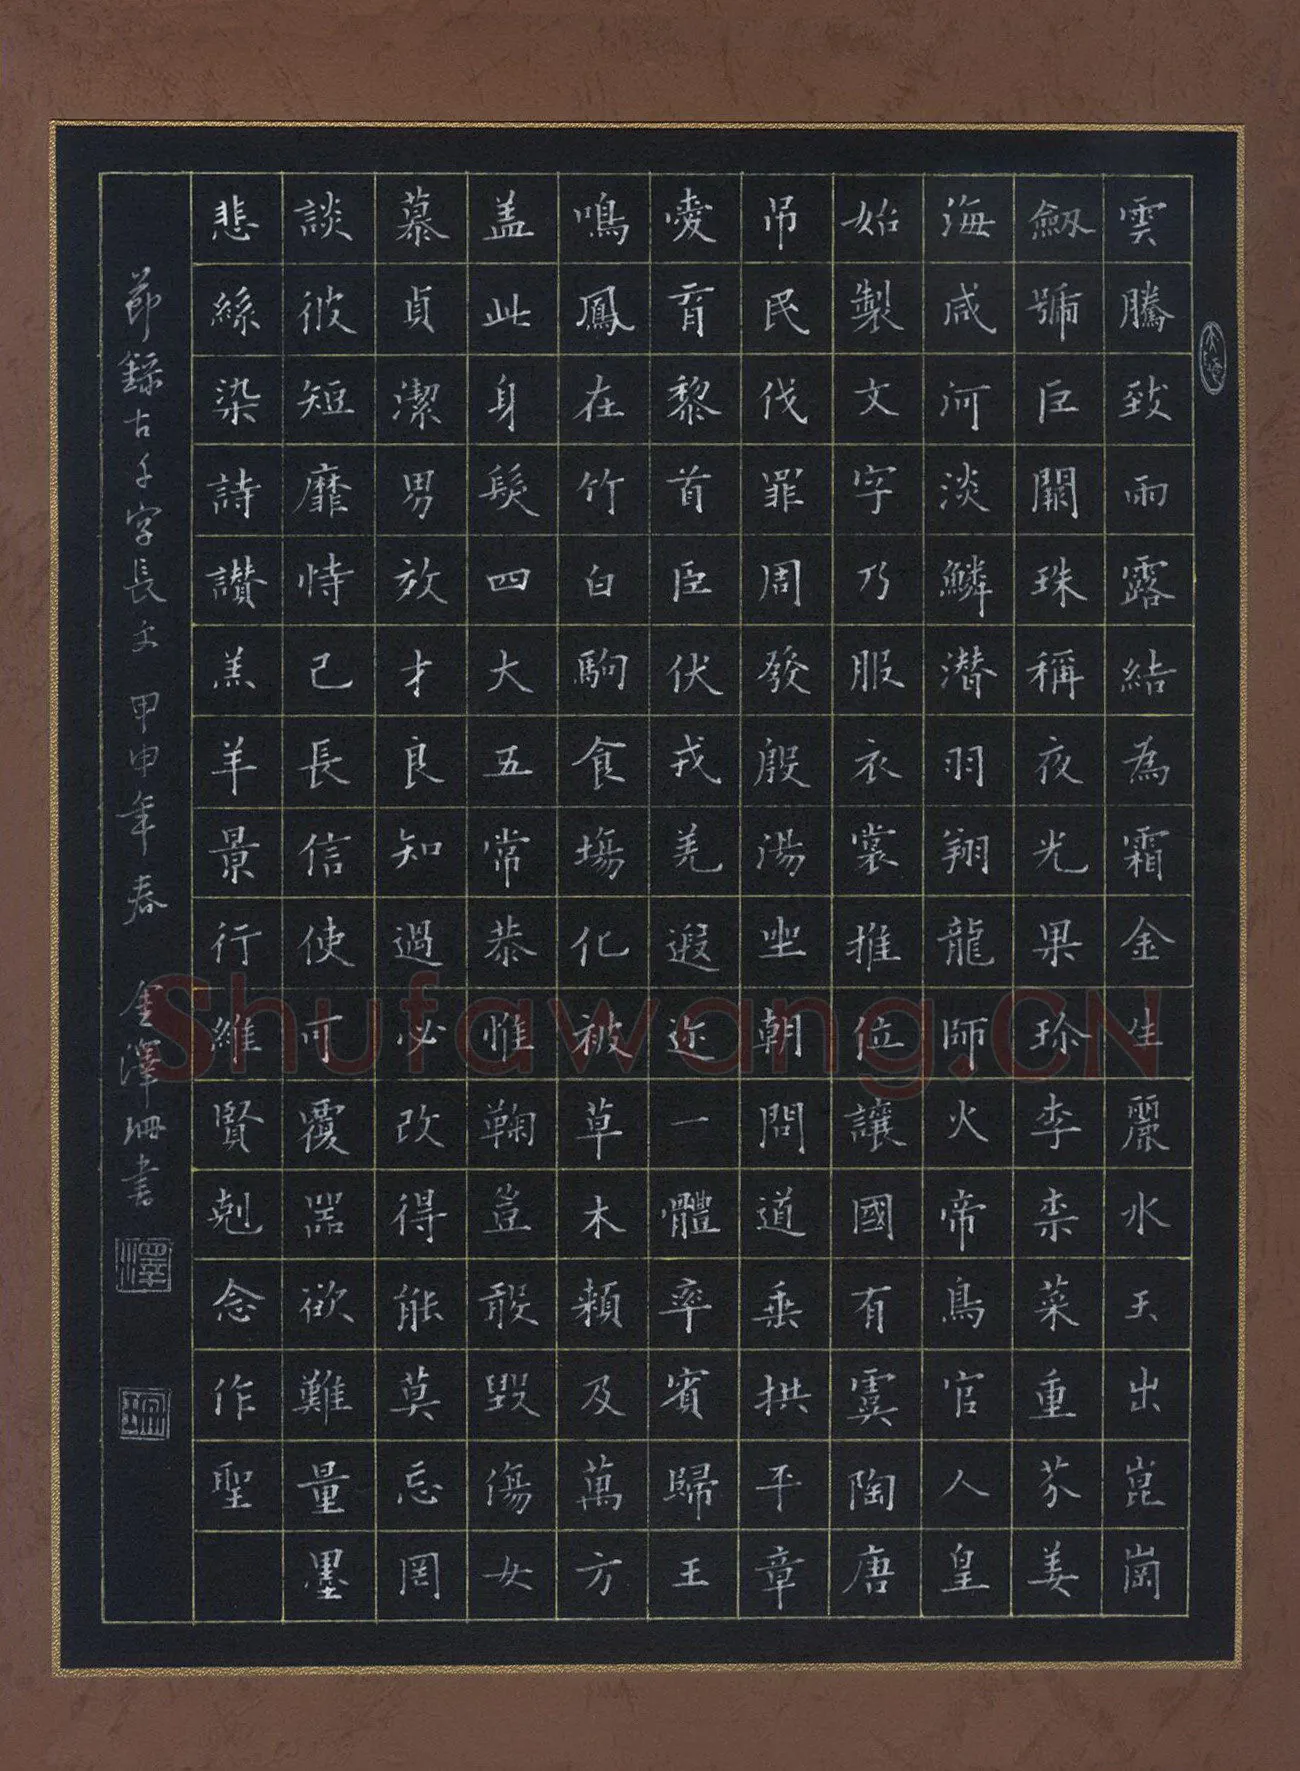 雲騰致雨露結為霜金生麗水玉出崑崗
劔號巨闕珠稱夜光果珍李柰菜重芥姜
海咸河淡鱗潛羽翔龍師火帝鳥官人皇
始製文字乃服衣裳推位讓國有虞陶唐
吊民伐罪周發殷湯坐朝問道垂拱平章
愛育黎首臣伏戎羌遐迩一體率賓歸王
鳴鳳在竹白駒食場化被草木賴及萬方
盖此身髮四大五常恭惟鞠豈敢毀傷女
慕貞潔男效才良知過必改得能莫忘罔
談彼短靡恃己長信使可覆器欲難量墨
悲絲染詩讃羔羊景行維賢剋念作聖
節錄古千字長文 甲申年春 金澤珊書
澤
珊
Shufawang.CN